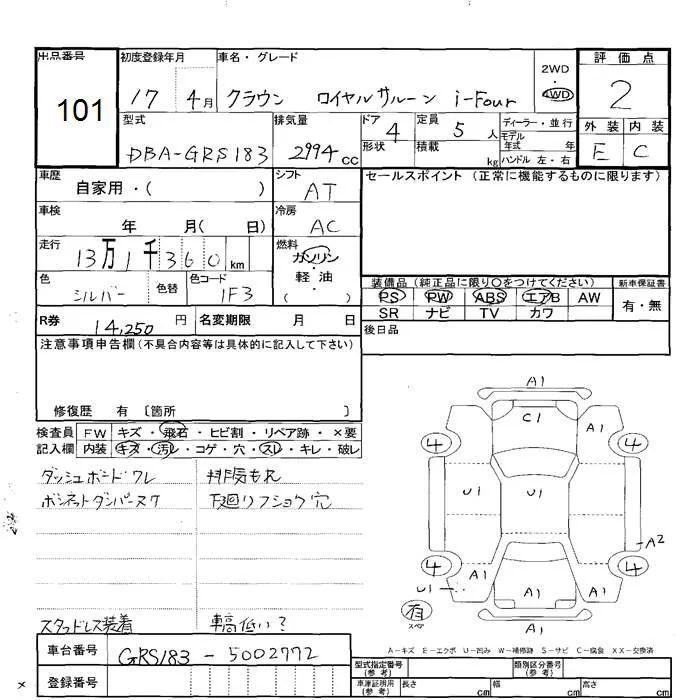 出品番号 初度登録年月 車名・グレード 2WD・4WD 評価点
101 17 4月 クラウン ロイヤルサルーン i-Four 2
型式 排気量 ドア 4 形状 定員 5 人 積載 kg ディーラー・並行 モデル年式 年式 ハンドル 左・右 外装 内装
DBA-GRS183 2994 cc E C
車歴 自家用・( ) シフト AT セールスポイント(正常に機能するものに限ります)
車検 年 月( 日) 冷房 AC
走行 13万1千360 km 燃料 ガソリン・軽油( )
色 シルバー 色替 色コード 1F3
装備品(純正品に限り○をつけてください) 新車保証書
PS PW ABS エアB AW 有・無
SR ナビ TV カワ
R券 14,250 円 名変期限 月 日 後日品
注意事項申告欄(不具合内容等は具体的に記入して下さい)
修復歴 有〔箇所 〕
検査員 FW キズ・飛石・ヒビ割・リペア跡・×要
記入欄 内装 キズ・汚レ・コゲ・穴・スレ・キレ・破レ
ダッシュボードワレ 排気もれ
ボンネットダンパーヌケ 下廻りフショク穴
スタッドレス装着 車高低い?
A1
C1 A1
4 4
U1 U1
A2
4 4
A1 U1 A1 A1
有 スペア
A1
A-キズ E-エクボ U-凹み W-補修跡 S-サビ C-腐食 XX-交換済
車台番号 GRS183-5002772
登録番号
型式指定番号(参考) 類別区分番号(参考)
車庫証明用(参考) 長さ cm 幅 cm 高さ cm
×